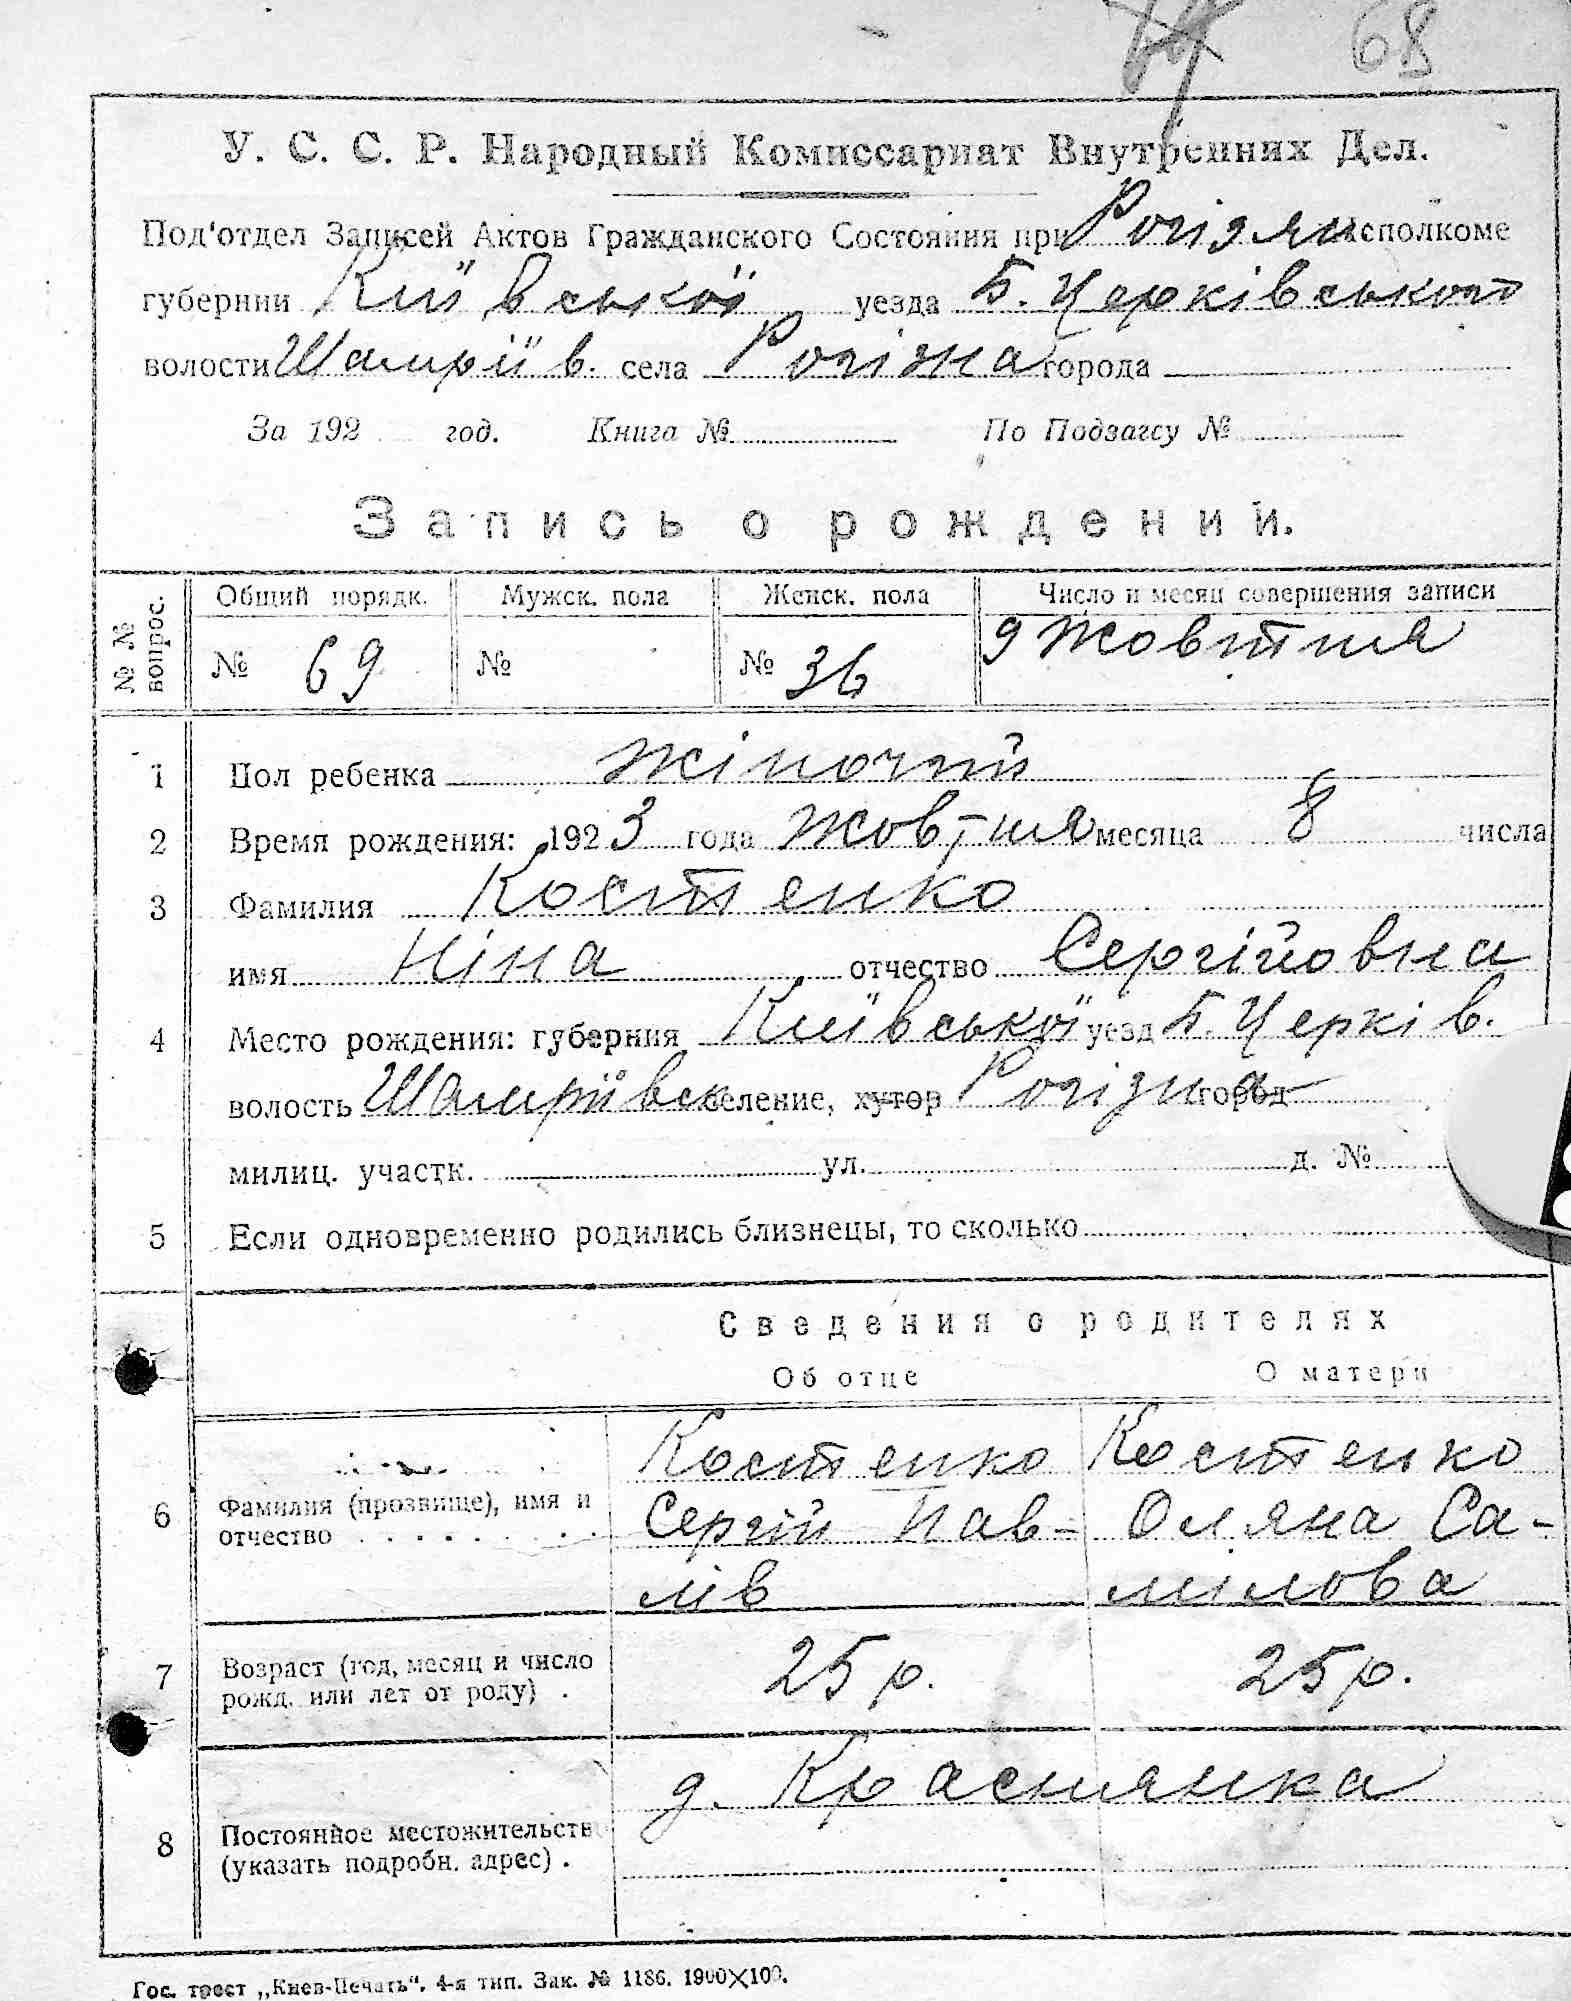 68
У. С. С. Р. Народный Комиссариат Внутренних Дел.
Под'отдел Записей Актов Гражданского Состояния при Рогізян исполкоме
губернии Київської уезда Б. Церківського
волости Шамріїв. села Рогізна города
За 192 год. Книга № По Подзагсу №
Запись о рождении.
№ № вопрос. Общий порядк. Мужск. пола Женск. пола Число и месяц совершения записи
№ 69 № № 36 9 Жовтня
1 Пол ребенка жіночий
2 Время рождения: 1923 года Жовтня месяца 8 числа
3 Фамилия Костенко
имя Ніна отчество Сергійовна
4 Место рождения: губерния Київської уезд Б. Церків.
волость Шамріївск селение, хутор Рогізна город
милиц. участк. ул. д. №
5 Если одновременно родились близнецы, то сколько
Сведения о родителях
Об отце О матери
Костенко Костенко
6 Фамилия (прозвище), имя и отчество Сергій Пав- Оляна Са-
лів мілова
7 Возраст (год, месяц и число рожд. или лет от роду) . 25 р. 25 р.
д. Краснянка
8 Постоянное местожительство (указать подробн. адрес) .
Гос. трест „Киев-Печать“. 4-я тип. Зак. № 1186. 1900×100.